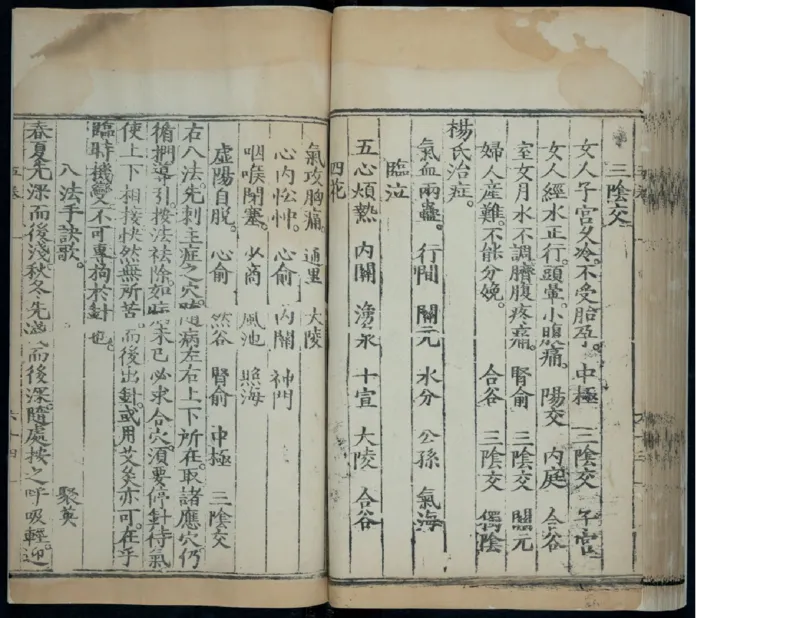 三陰交
女人子宮久冷。不受胎孕。 中極 三陰交 子宮
女人經水正行。頭暈。小腹痛。 陽交 內庭 合谷
室女月水不調。臍腹疼痛。 腎俞 三陰交 關元
婦人産難。不能分娩。 合谷 三陰交 獨陰
楊氏治症。
氣血兩蠱。 行間 關元 水分 公孫 氣海
臨泣
五心煩熱 內關 湧泉 十宣 大陵 合谷
四花
氣攻胸痛。 通里 大陵
心內怔忡。 心俞 內關 神門
咽喉閉塞。 少商 風池 照海
虛陽自脫。 心俞 然谷 腎俞 中極 三陰交
右八法。先刺主症之穴。隨病左右上下所在。取諸應穴。仍
循捫導引。按法祛除。如病未已。必求合穴。須要停針待氣
使上下相接。快然無所苦。而後出針。或用艾灸亦可。在乎
臨時機變。不可專拘於針也。
八法手訣歌。 聚英
春夏先深而後淺秋冬先淺而後深。隨處按之呼吸輕。迎